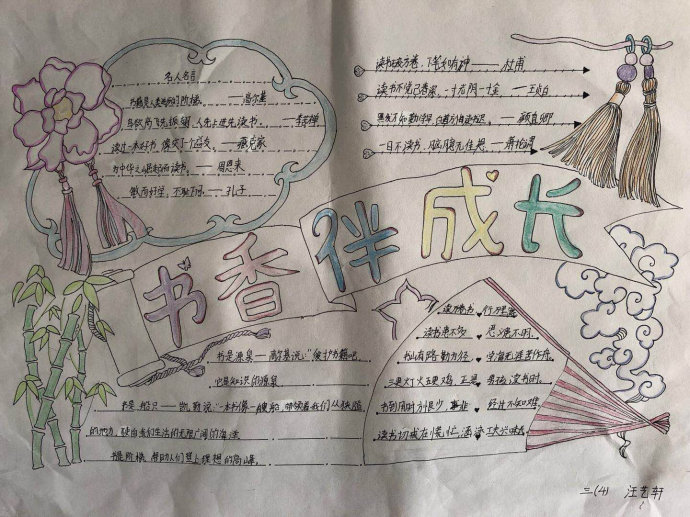 名人名言
书籍是人类进步的阶梯。——高尔基
鸟欲高飞先振翅，人求上进先读书。——李若禅
读过一本好书，像交了一个益友。——臧克家
为中华之崛起而读书。——周恩来
敏而好学，不耻下问。——孔子
读书破万卷，下笔如有神——杜甫
读书不觉已春深，一寸光阴一寸金——王贞白
黑发不知勤学早，白首方悔读书迟。——颜真卿
一日不读书，胸臆无佳想——萧抡谓
书香伴成长
书是源泉——高尔基说：“
它是知识的源泉
书是船只——凯勒说：“一本书像一艘船，带领着我们从狭隘
的地方，驶向
生活的无限广阔的海洋
书是阶梯 帮助人们登上理想的高峰。
读万卷书 行万里路
读书患不多 思义患不明。
书山有路勤为径 学海无涯苦作舟。
三更灯火五更鸡 正是男孩读书时。
书到用时方恨少 事非经过不知难。
读书切戒在慌忙 涵泳工夫兴味长
三(4) 汪艺轩